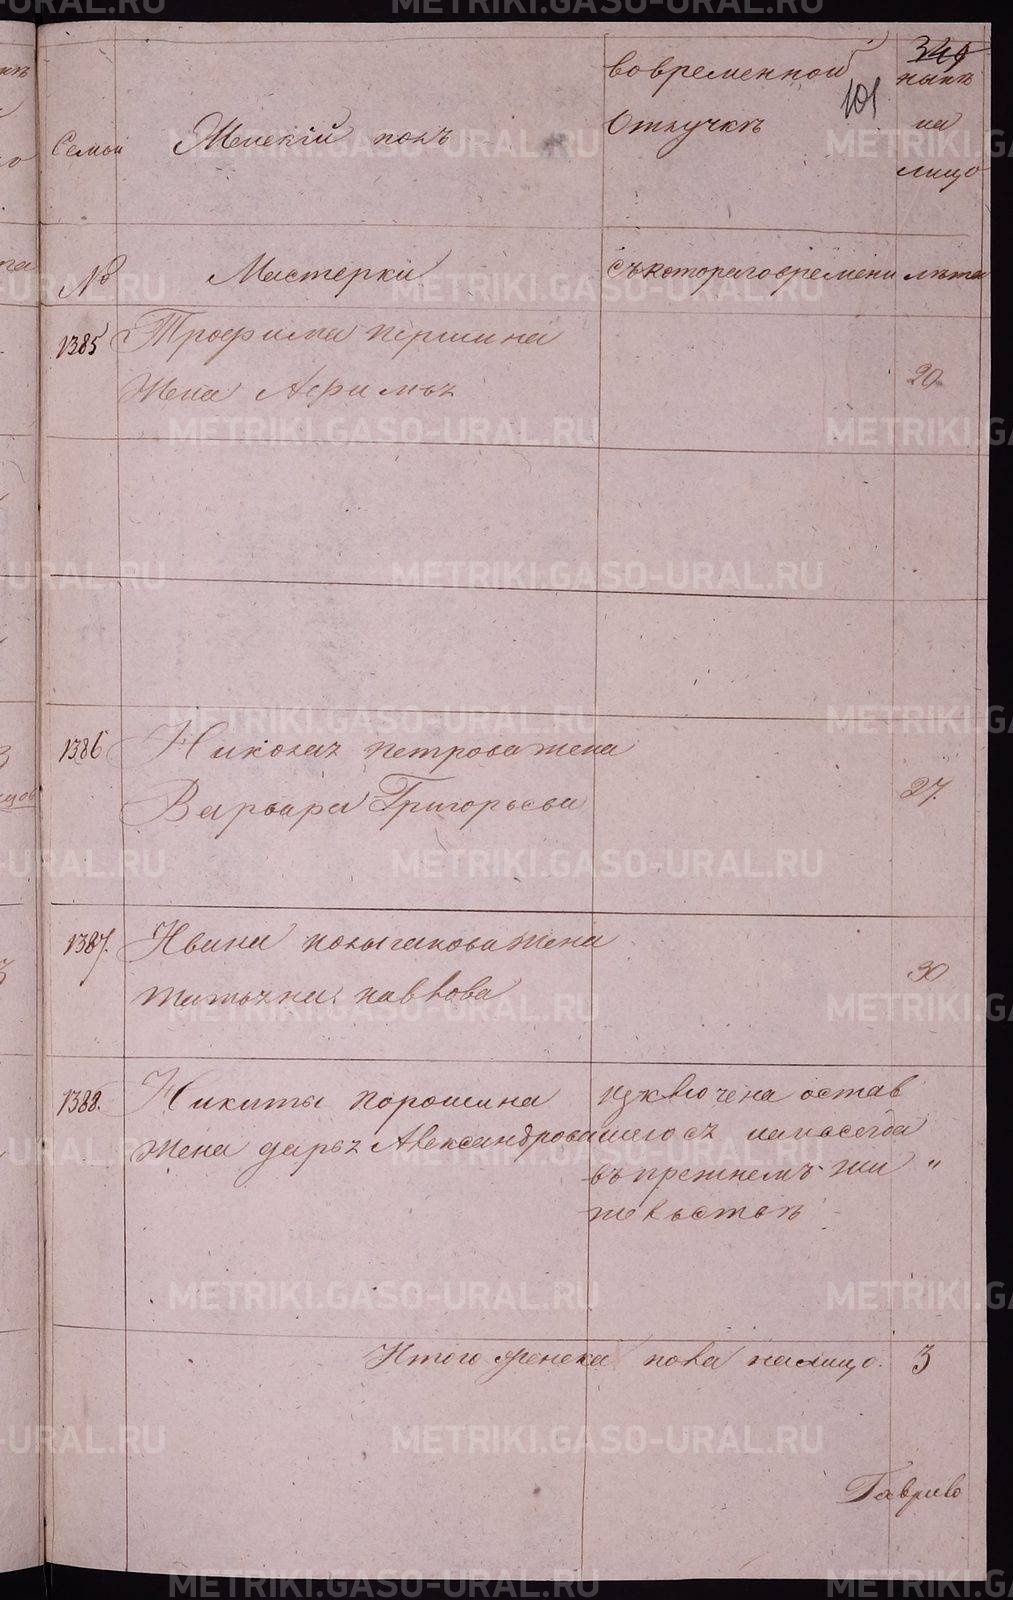 349
101
Семьи
Женскій полъ
во временной
Отлучкѣ
нынѣ
на
лицо
№
Мастерки
съ котораго времени
лѣта
1385
Трофима Першина
жена Афимья
20
1386
Николая Петрова жена
Варвара Григорьева
27.
1387.
Ивана Полыгалова жена
Татьяна Павлова
30
1388.
Никиты Порошина
жена Дарья Александрова
изключена остав
шаюся навсегда
въ прежнемъ жи
тельствѣ
"
Итого женска пола налицо.
3
Гаврило
METRIKI.GASO-URAL.RU